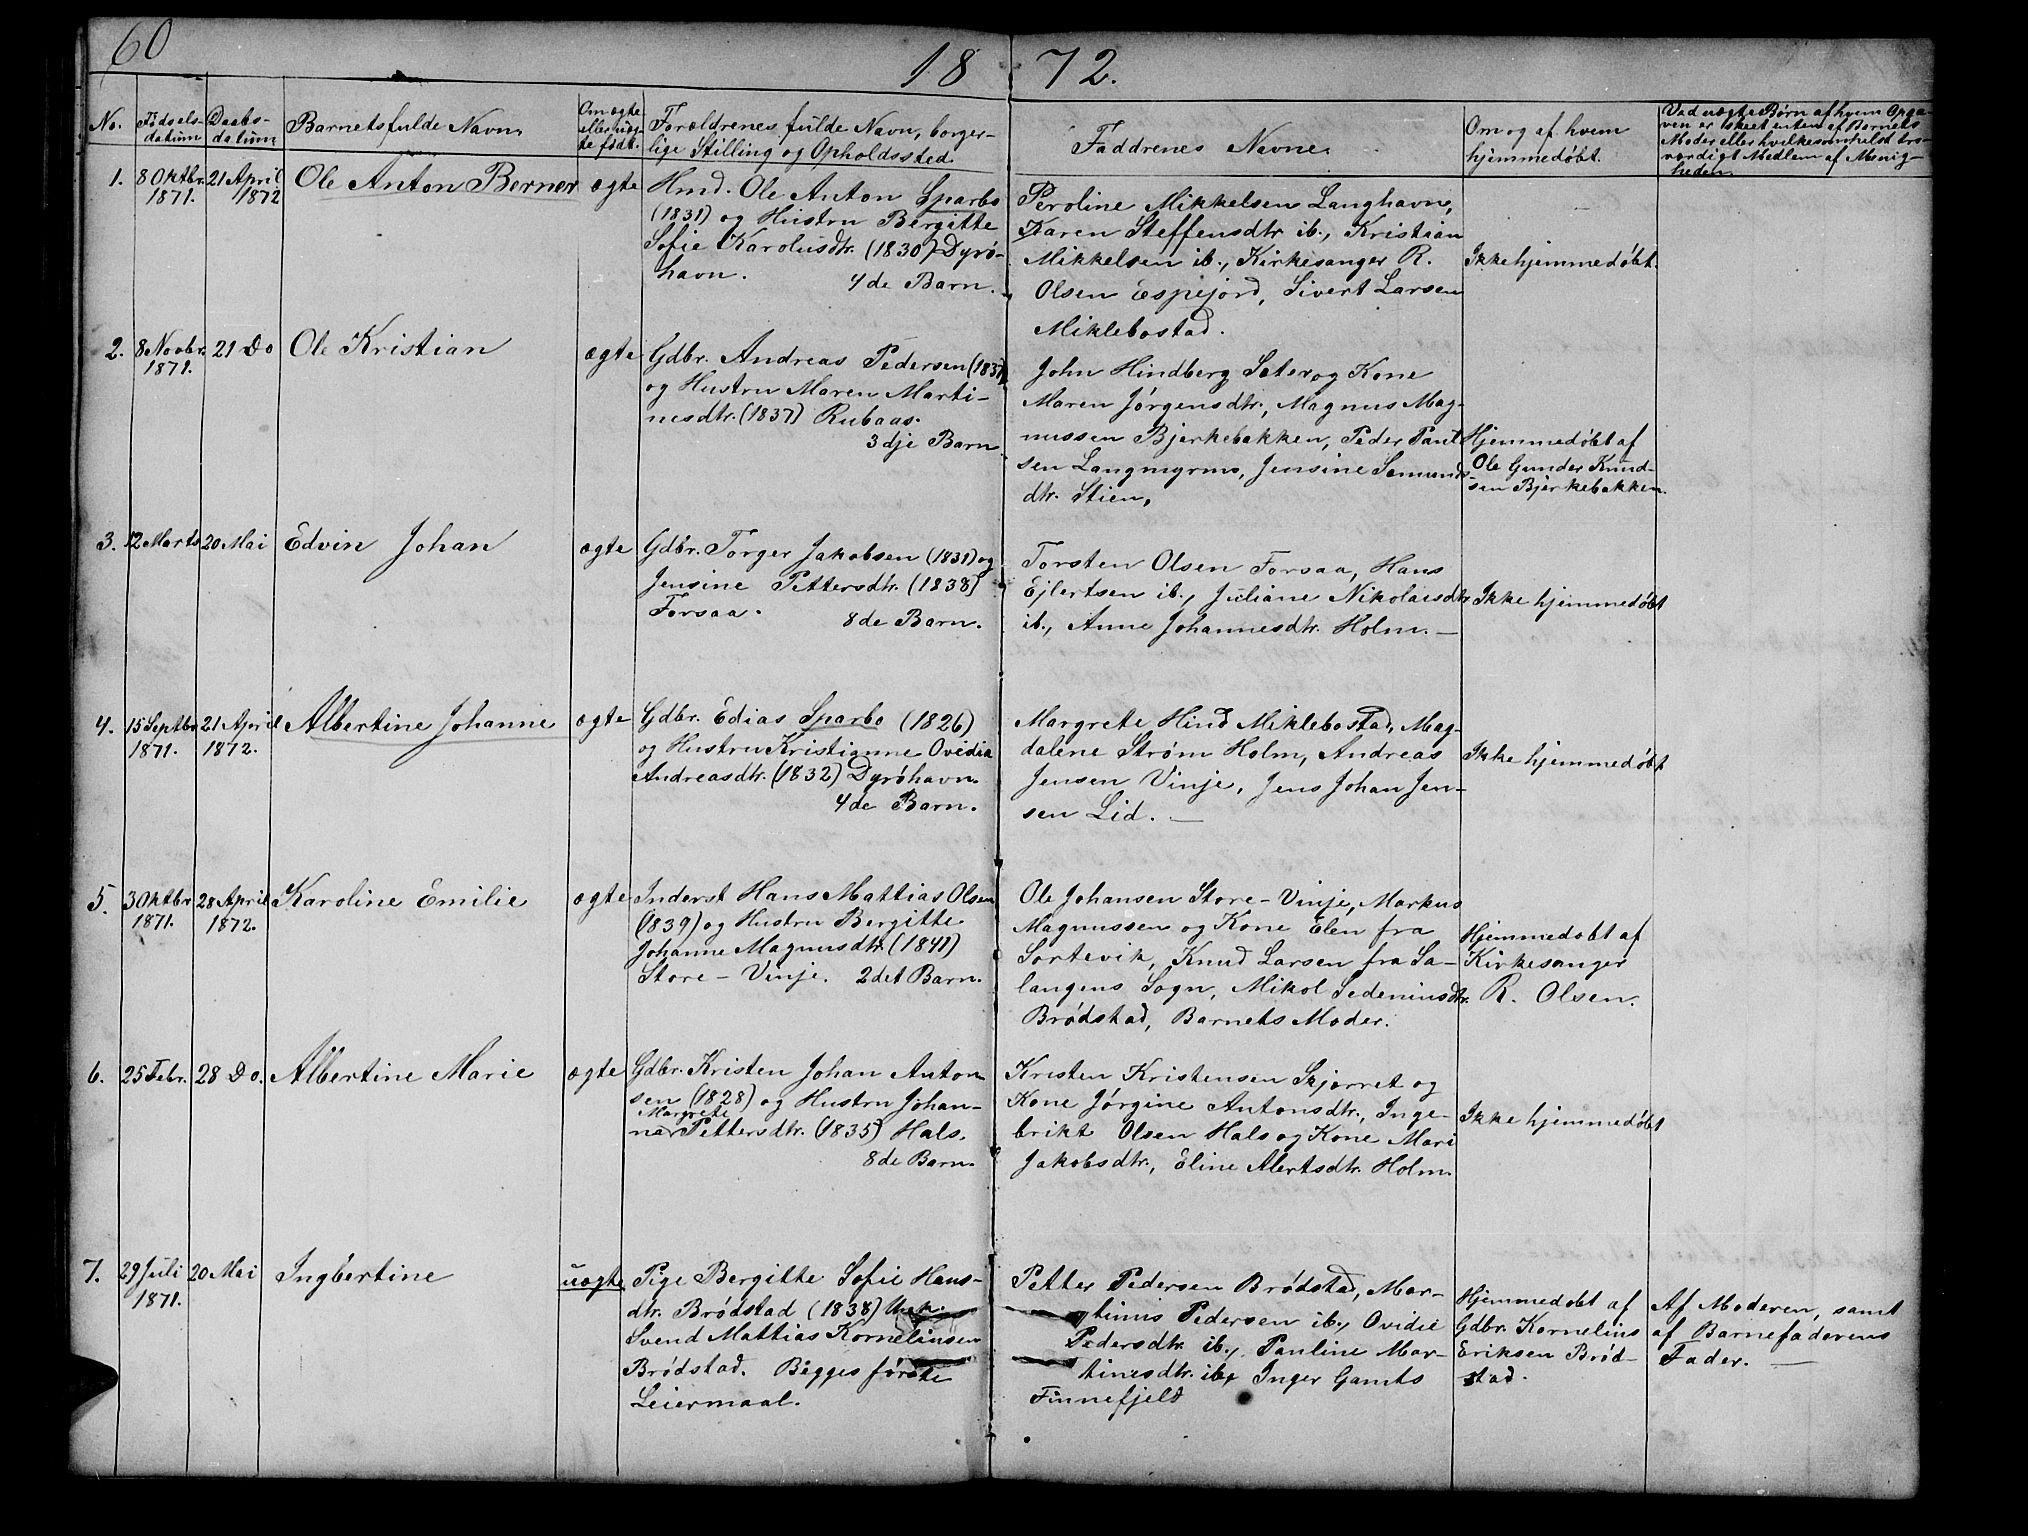 60
18 72.
No.
Fødsels-
datum
Daabs-
datum
Barnets fulde Navn.
Om ægte
eller uæg-
te født.
Forældrenes fulde Navn, borger-
lige Stilling og Opholdssted.
Faddrenes Navne.
Om og af hvem
hjemmedøbt.
Ved uægte Børn af hvem Opga-
ven er skeet enten af Barnets
Moder eller hvilketsomhelst tro-
værdigt Medlem af Menig-
heden.
1.
8 Oktbr.
1871.
21 April
1872
Ole Anton Berner
ægte
Hmd. Ole Anton Sparbo
(1831) og Hustru Bergitte
Sofie Karolusdtr. (1830) Dyrø-
havn.
4de Barn.
Peroline Mikkelsen Langhavn,
Karen Steffensdtr ib., Kristian
Mikkelsen ib., Kirkesanger R.
Olsen Espejord, Sivert Larsen
Miklebostad.
Ikke hjemmedøbt.
2.
8 Novbr.
1871.
21 Do
Ole Kristian
ægte
Gdbr. Andreas Pedersen (1837)
og Hustru Maren Marti-
nesdtr. (1837) Rubaas.
3dje Barn
John Hindberg Sæter og Kone
Maren Jørgensdtr., Magnus Mag-
nussen Bjerkebakken, Peder Paul
sen Langmyrmo, Jensine Samunds-
dtr. Stien,
Hjemmedøbt af
Ole Gunder Knud-
sen Bjerkebakken.
3.
12 Marts
20 Mai
Edvin Johan
ægte
Gdbr. Torger Jakobsen (1831) og
Jensine Pettersdtr. (1838)
Forsaa.
8de Barn.
Torsten Olsen Forsaa, Hans
Ejlertsen ib., Juliane Nikolaisdtr
ib., Anne Johannesdtr. Holm. —
Ikke hjemmedøbt
4.
15 Septbr
1871.
21 April
1872.
Albertine Johanne
ægte
Gdbr. Edias Sparbo (1826)
og Hustru Kristianne Ovidia
Andreasdtr. (1832) Dyrøhavn.
4de Barn.
Margrete Hind Miklebostad, Mag-
dalene Strøm Holm, Andreas
Jensen Vinje, Jens Johan Jen-
sen Lid. —
Ikke hjemmedøbt
5.
3 Oktbr
1871.
28 April
1872.
Karoline Emilie
ægte
Inderst Hans Mattias Olsen
(1839) og Hustru Bergitte
Johanne Magnusdtr. (1841)
Store-Vinje. 2det Barn.
Ole Johansen Store-Vinje, Markus
Magnussen og Kone Elen fra
Sortevik, Knud Larsen fra Sa-
langens Sogn, Mikol Sedeniusdtr.
Brødstad, Barnets Moder.
Hjemmedøbt af
Kirkesanger
R. Olsen.
6.
25 Febr.
28 Do.
Albertine Marie
ægte
Gdbr. Kristen Johan Anton
sen (1828) og Hustru Johan-
Margrete
na Pettersdtr. (1835) Hals.
8de Barn.
Kristen Kristensen Skjorret og
Kone Jørgine Antonsdtr., Inge-
brikt Olsen Hals og Kone Mari
Jakobsdtr., Eline Alertsdtr. Holm.
Ikke hjemmedøbt
7.
29 Juli
1871.
20 Mai
Ingbertine
uægte
Pige Bergitte Sofie Hans-
dtr. Brødstad (1838)
Svend Mattias Kornelinsen
Brødstad. Begges første
Leiermaal.
Petter Pedersen Brødstad, Mar-
tinus Pedersen ib., Ovidie
Pedersdtr. ib., Pauline Mar-
tinesdtr. ib., Inger Gamts
Finnefjeld
Hjemmedøbt af
Gdbr. Kornelius
Eriksen Brød-
stad.
Af Moderen, samt
af Barnefaderens
Fader. —